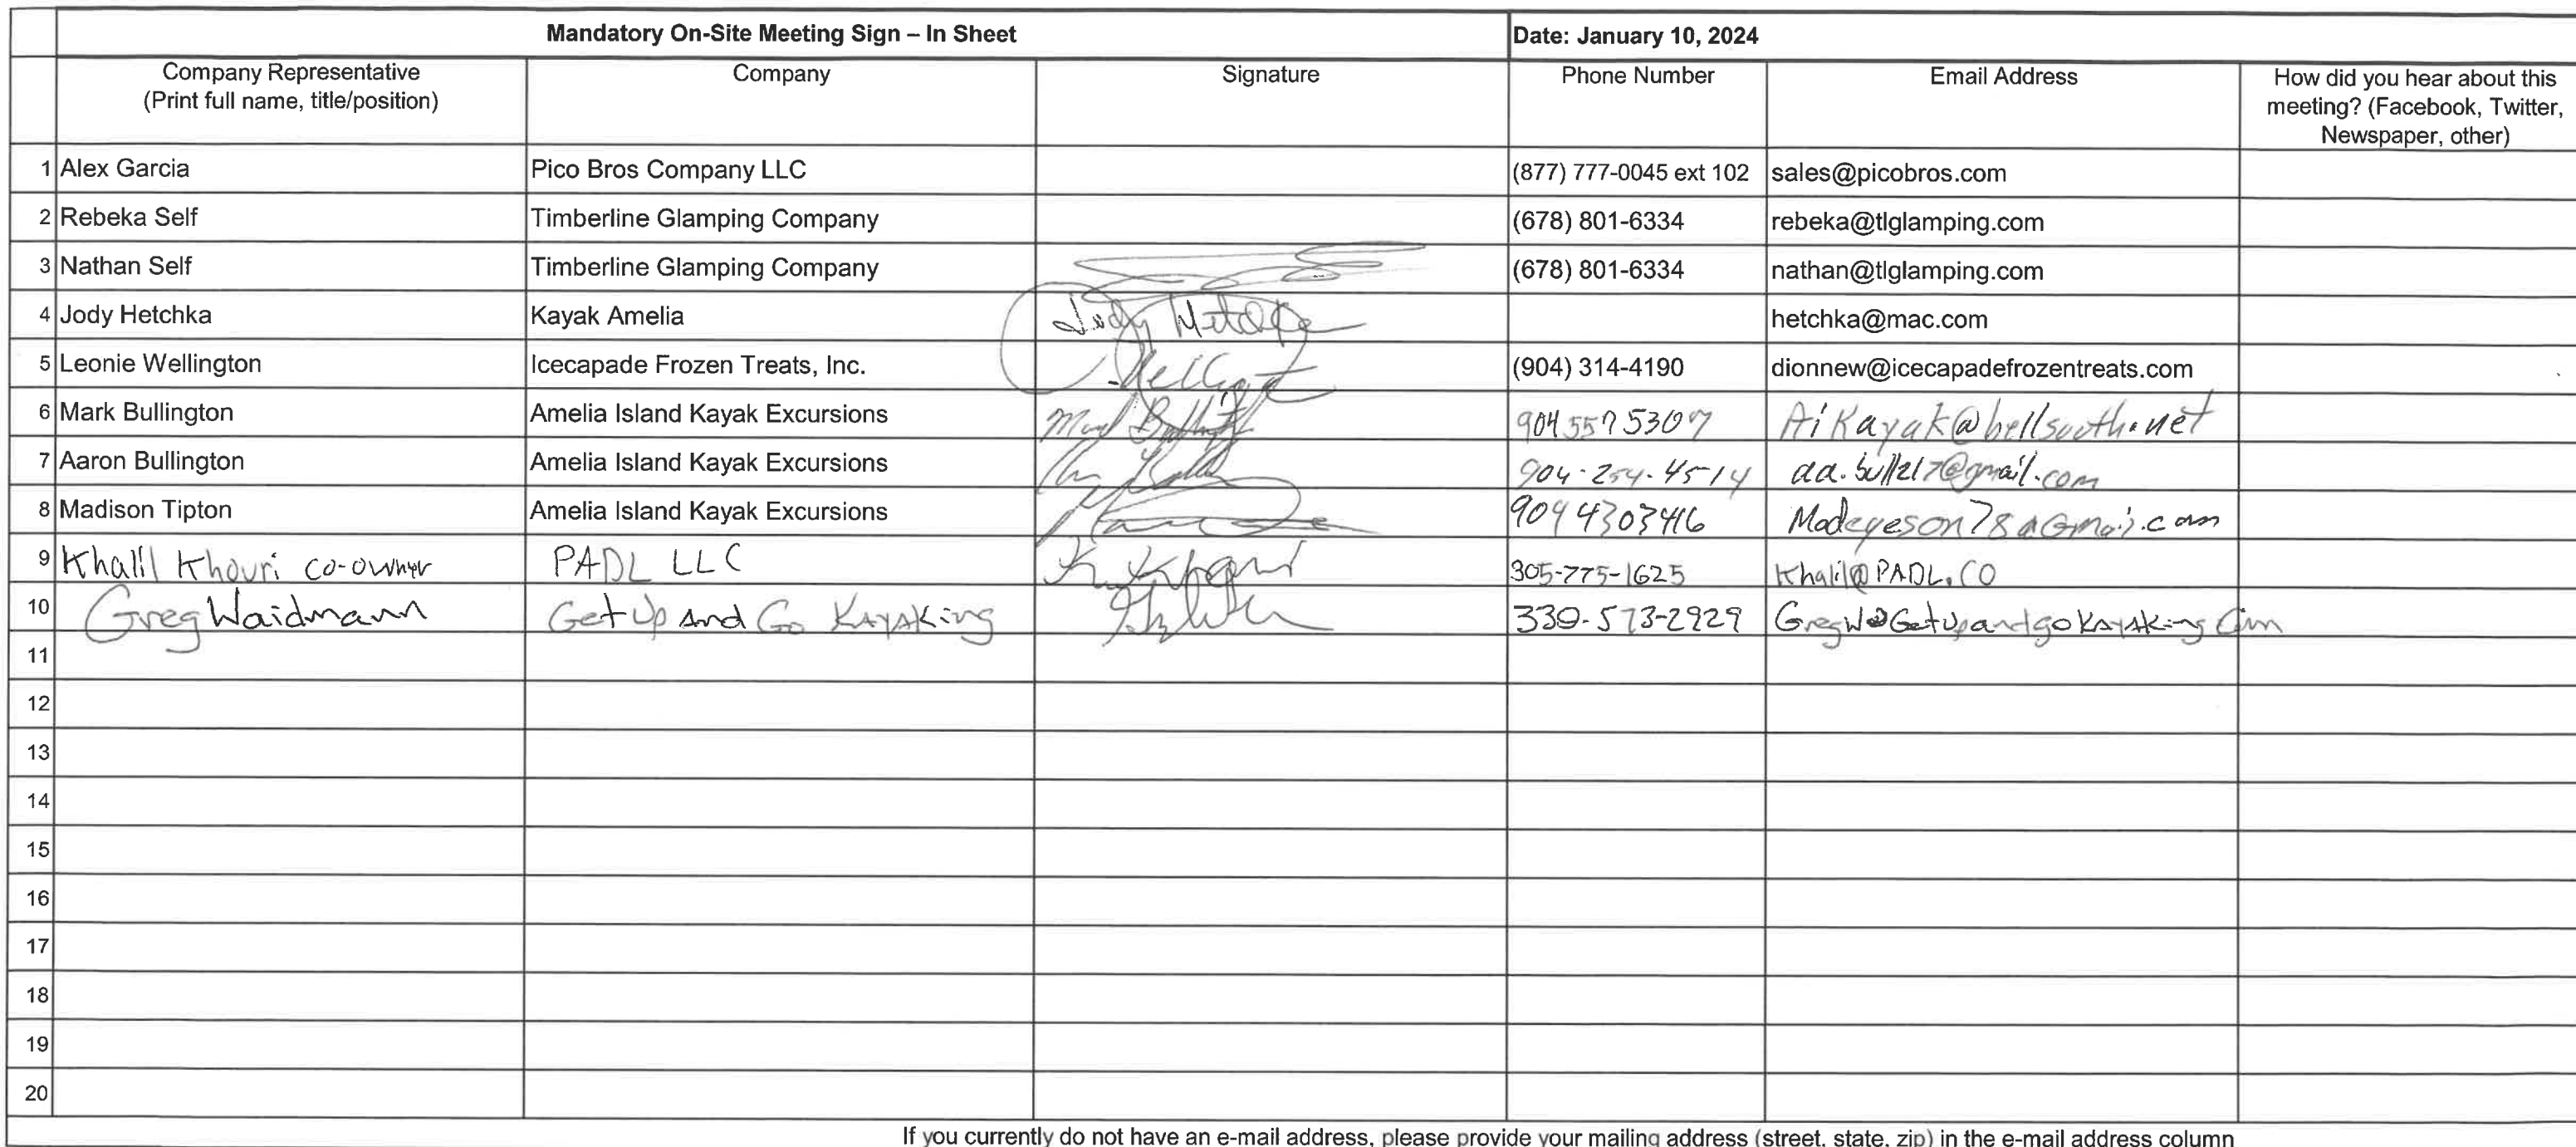 Mandatory On-Site Meeting Sign – In Sheet Date: January 10, 2024
Company Representative Company Signature Phone Number Email Address How did you hear about this
(Print full name, title/position) meeting? (Facebook, Twitter,
Newspaper, other)
1 Alex Garcia Pico Bros Company LLC (877) 777-0045 ext 102 sales@picobros.com
2 Rebeka Self Timberline Glamping Company (678) 801-6334 rebeka@tlglamping.com
3 Nathan Self Timberline Glamping Company (678) 801-6334 nathan@tlglamping.com
4 Jody Hetchka Kayak Amelia Jody hetchka@mac.com
5 Leonie Wellington Icecapade Frozen Treats, Inc. (904) 314-4190 dionnew@icecapadefrozentreats.com
6 Mark Bullington Amelia Island Kayak Excursions 904 557 5307 AiKayak@bellsouth.net
7 Aaron Bullington Amelia Island Kayak Excursions 904-254-4514
8 Madison Tipton Amelia Island Kayak Excursions 904 4303416
9 Khalil Khouri co-owner PADL LLC 305-775-1625 Khalil@PADL.CO
10 Greg Waidmann Get Up And Go Kayaking 330-573-2929 GregW@GetUpandgoKayaking.Com
11
12
13
14
15
16
17
18
19
20
If you currently do not have an e-mail address, please provide your mailing address (street, state, zip) in the e-mail address column